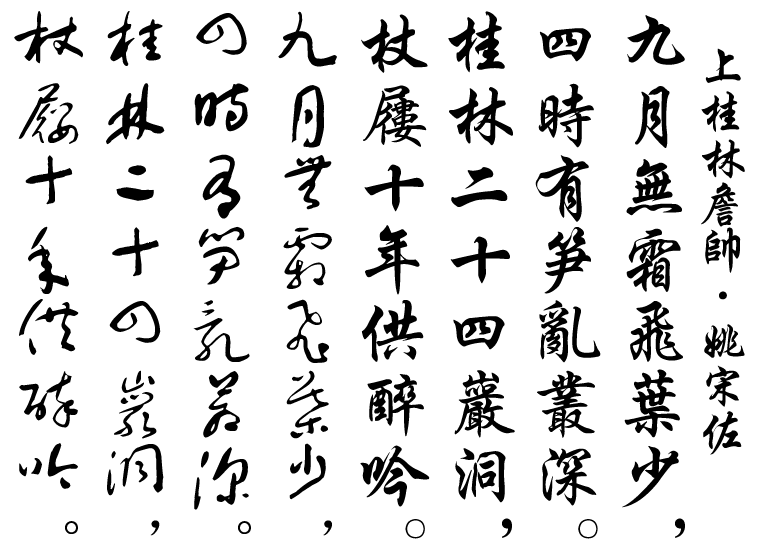 上桂林詹帥·姚宋佐
九月無霜飛葉少，
四時有笋亂叢深。
桂林二十四巖洞，
杖屨十年供醉吟。
九月無霜飛葉少，
四時有笋亂叢深。
桂林二十四巖洞，
杖屨十年供醉吟。